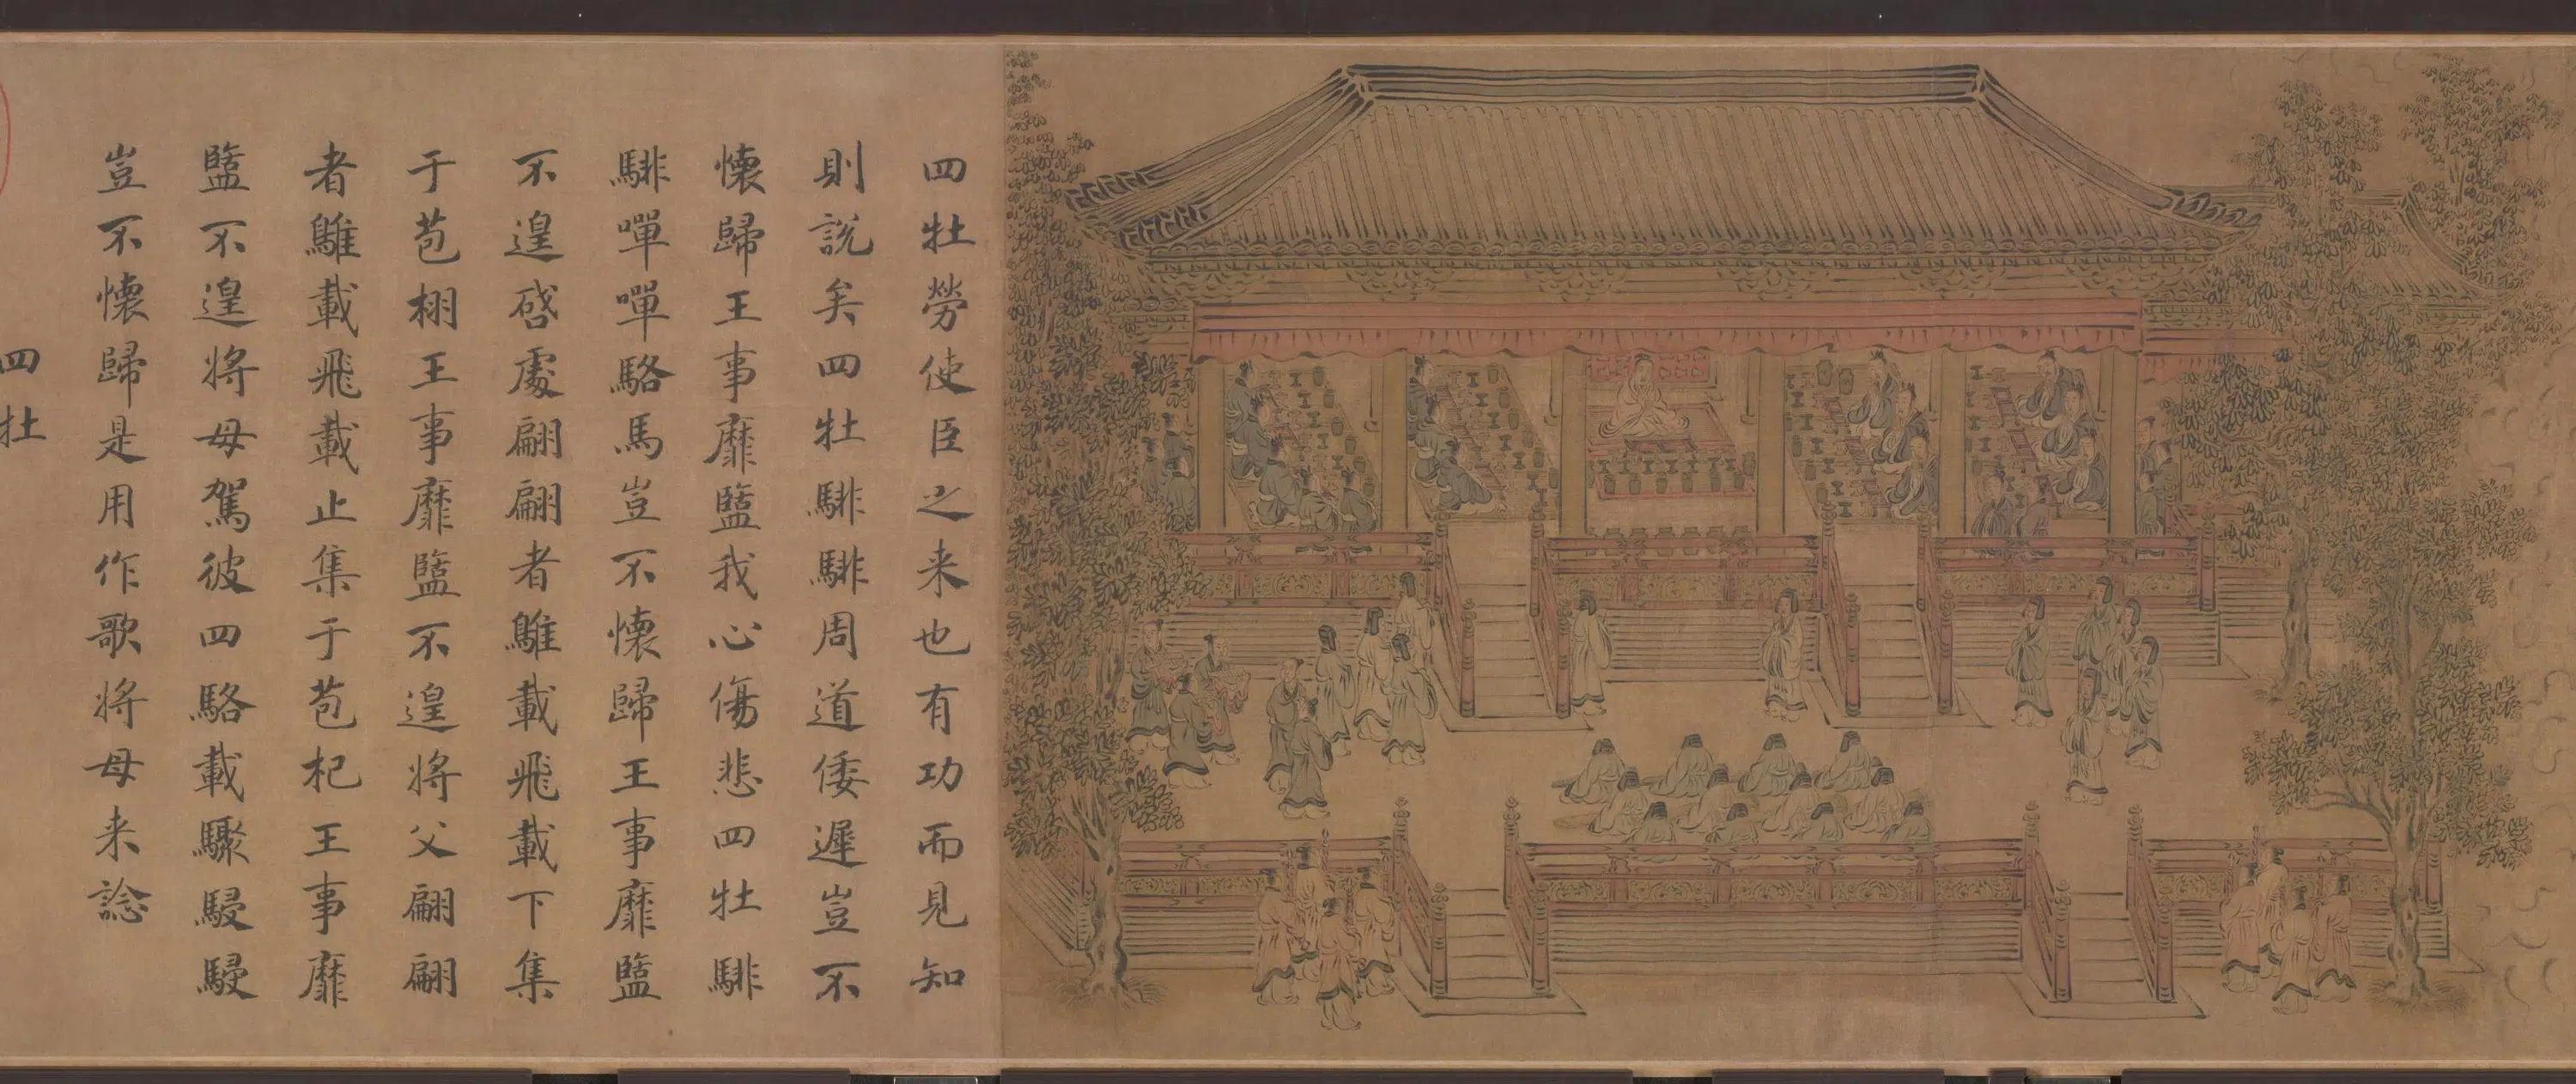 四牡勞使臣之来也有功而見知
則説矣四牡騑騑周道倭遲豈不
懐歸王事靡盬我心傷悲四牡騑
騑嘽嘽駱馬豈不懐歸王事靡盬
不遑啓處翩翩者鵻載飛載下集
于苞栩王事靡盬不遑将父翩翩
者鵻載飛載止集于苞杞王事靡
盬不遑将母駕彼四駱載驟駸駸
豈不懐歸是用作歌将母来諗
四牡